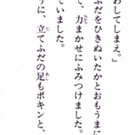 わしてしまえ。」
ふだをひきぬいたかとおもうまに
て、力まかせにふみつけました。
ていました。
けに、立てふだの足もポキンと、